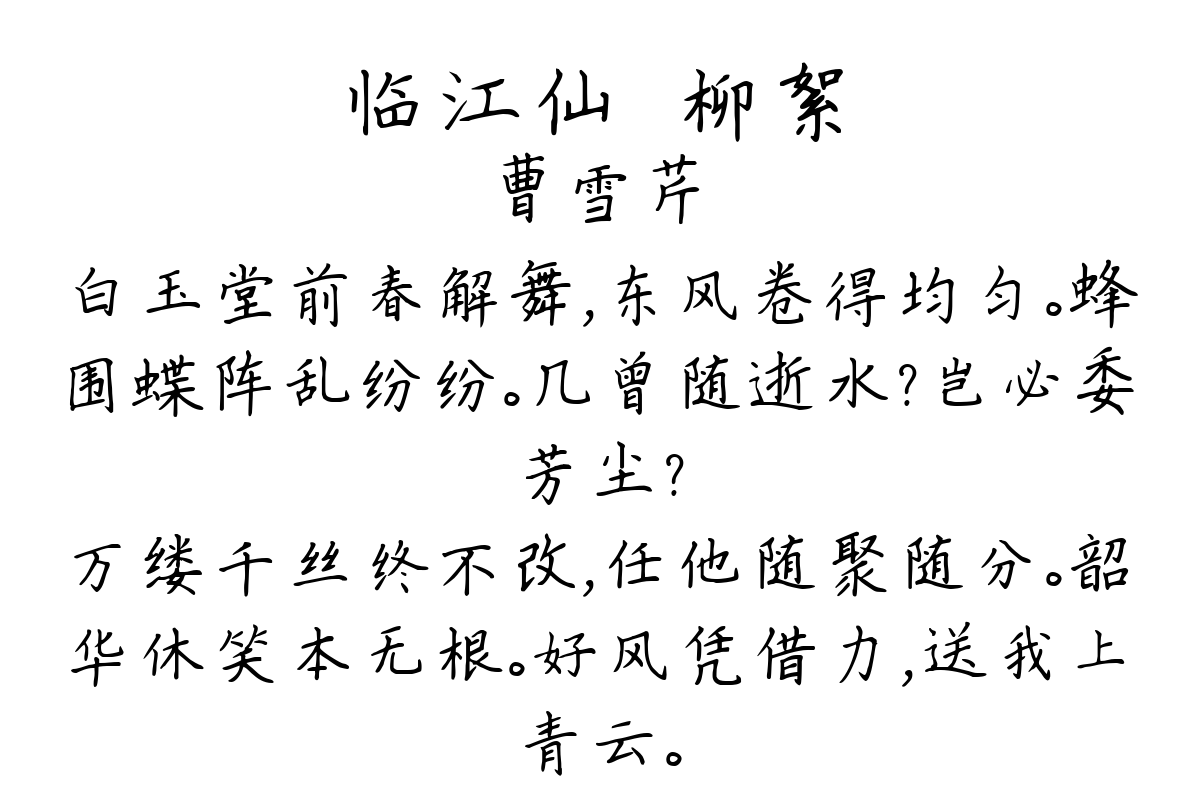 临江仙 柳絮
曹雪芹
白玉堂前春解舞,东风卷得均匀。蜂
围蝶阵乱纷纷。几曾随逝水?岂必委
芳尘?
万缕千丝终不改,任他随聚随分。韶
华休笑本无根。好风凭借力,送我上
青云。